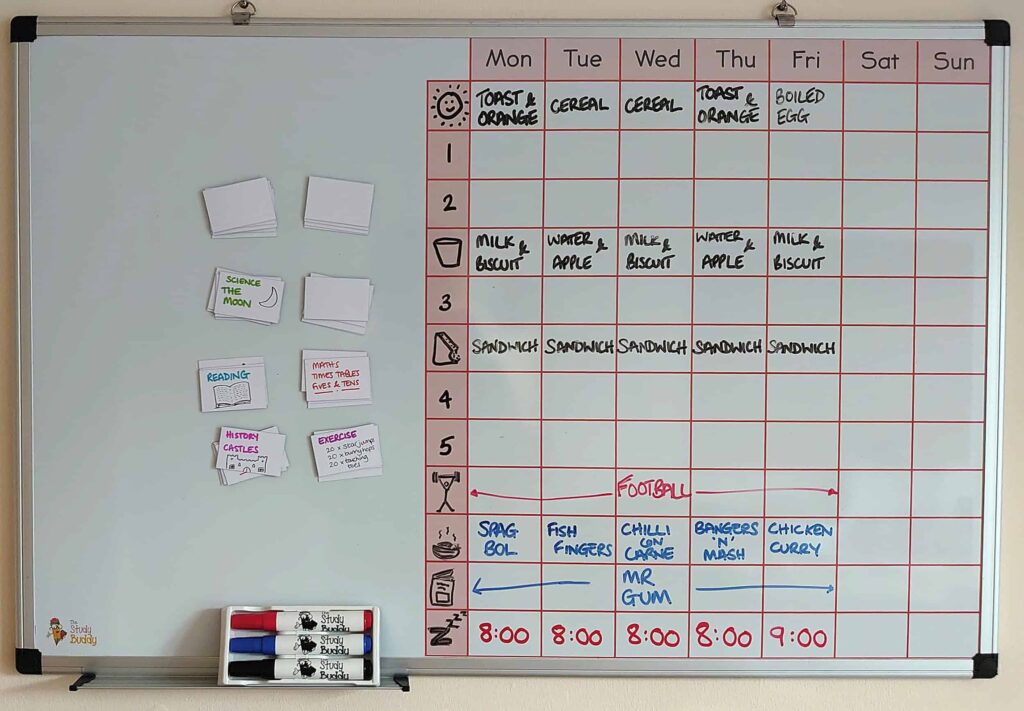 Mon Tue Wed Thu Fri Sat Sun
TOAST & ORANGE CEREAL CEREAL TOAST & ORANGE BOILED EGG
1
2
MILK & BISCUIT WATER & APPLE MILK & BISCUIT WATER & APPLE MILK & BISCUIT
3
SANDWICH SANDWICH SANDWICH SANDWICH SANDWICH
4
5
FOOTBALL
SPAG BOL FISH FINGERS CHILLI CON CARNE BANGERS 'N' MASH CHICKEN CURRY
MR GUM
ZZZZ
8:00 8:00 8:00 8:00 9:00
SCIENCE
THE
MOON
READING
MATHS
TIMES TABLES
FIVES & TENS
HISTORY
CASTLES
EXERCISE
20 x star jump
20 x bunny hops
20 x touching
toes
The
Study
Buddy
The
Study
Buddy
The
Study
Buddy
The
Study
Buddy